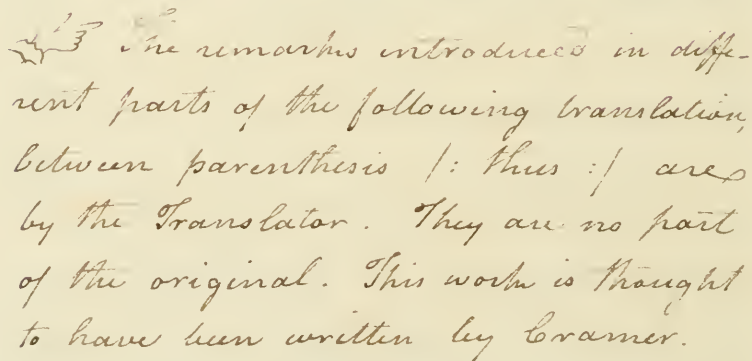 ☞ The remarks introduced in diffe-
rent parts of the following translation,
between parenthesis /: thus :/ are
by the Translator. They are no part
of the original. This work is thought
to have been written by Cramer.